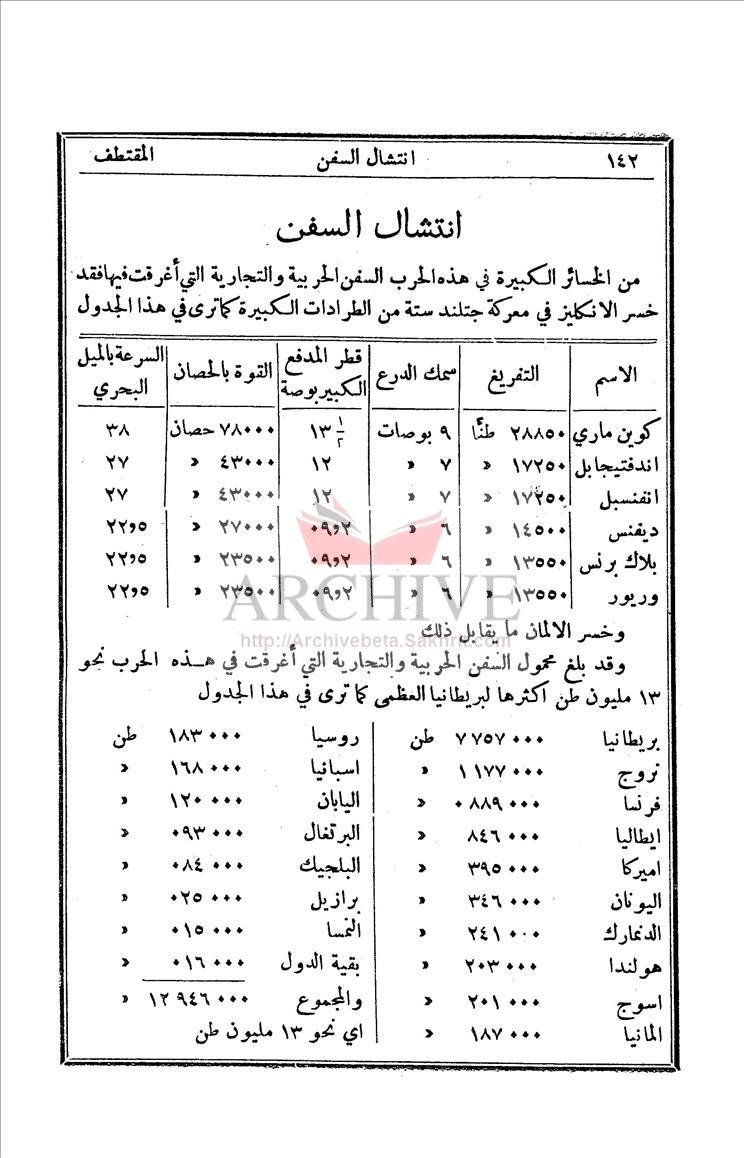 ١٤٢ انتشال السفن المقتطف
انتشال السفن
من الخسائر الكبيرة في هذه الحرب السفن الحربية والتجارية التي أغرقت فيها فقد
خسر الانكليز في معركة جتلند ستة من الطرادات الكبيرة كما ترى في هذا الجدول
الاسم التفريغ سمك الدرع قطر المدفع الكبير بوصة القوة بالحصان السرعة بالميل البحري
كوين ماري ٢٨٨٥٠ طنًّا ٩ بوصات ١٣ ١/٢ ٧٨٠٠٠ حصان ٣٨
اندفتيجابل ١٧٢٥٠ « ٧ « ١٢ ٤٣٠٠٠ « ٢٧
انفنسبل ١٧٢٥٠ « ٧ « ١٢ ٤٣٠٠٠ « ٢٧
ديفنس ١٤٥٠٠ « ٦ « ٠٩و٢ ٢٧٠٠٠ « ٢٢و٥
بلاك برنس ١٣٥٥٠ « ٦ « ٠٩و٢ ٢٣٥٠٠ « ٢٢و٥
وريور ١٣٥٥٠ « ٦ « ٠٩و٢ ٢٣٥٠٠ « ٢٢و٥
ARCHIVE
http://Archivebeta.Sakhrit.com
وخسر الالمان ما يقابل ذلك
وقد بلغ محمول السفن الحربية والتجارية التي أغرقت في هذه الحرب نحو
١٣ مليون طن اكثرها لبريطانيا العظمى كما ترى في هذا الجدول
بريطانيا ٧٧٥٧٠٠٠ طن
نروج ١١٧٧٠٠٠ «
فرنسا ٠٨٨٩٠٠٠ «
ايطاليا ٨٤٦٠٠٠ «
اميركا ٣٩٥٠٠٠ «
اليونان ٣٤٦٠٠٠ «
الدنمارك ٢٤١٠٠٠ «
هولندا ٢٠٣٠٠٠ «
اسوج ٢٠١٠٠٠ «
المانيا ١٨٧٠٠٠ «
روسيا ١٨٣٠٠٠ طن
اسبانيا ١٦٨٠٠٠ «
اليابان ١٢٠٠٠٠ «
البرتغال ٠٩٣٠٠٠ «
البلجيك ٠٨٤٠٠٠ «
برازيل ٠٢٥٠٠٠ «
النمسا ٠١٥٠٠٠ «
بقية الدول ٠١٦٠٠٠ «
والمجموع ١٢٩٤٦٠٠٠ «
اي نحو ١٣ مليون طن